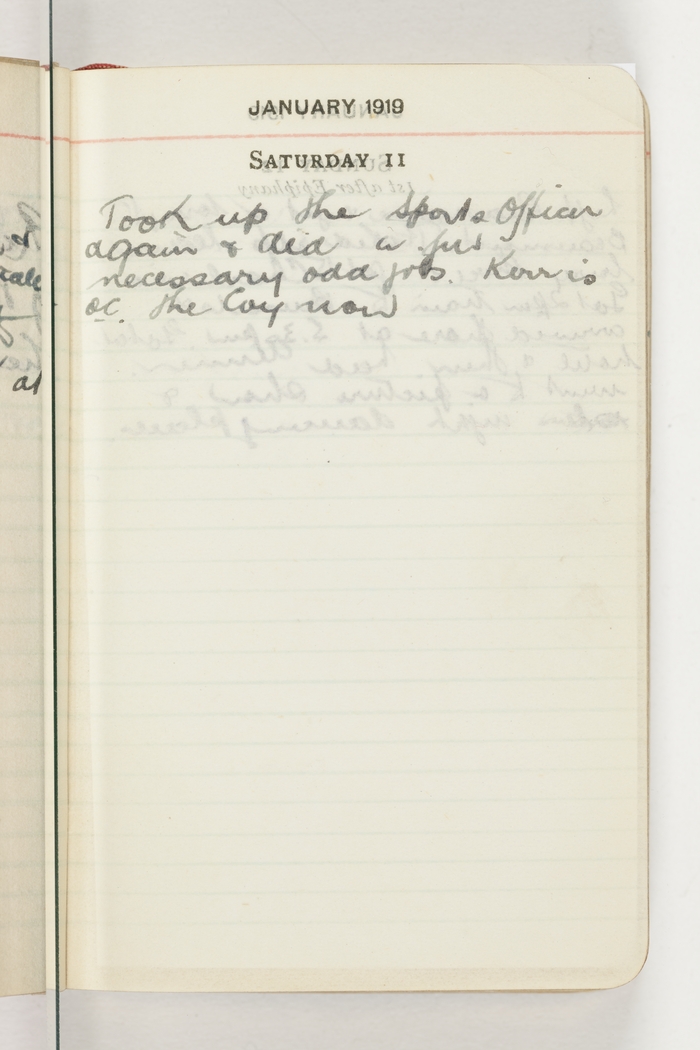 JANUARY 1919
SATURDAY 11
Took up the Sports Officer
again & did a few
necessary odd jobs. Kerr is
OC. the Coy now